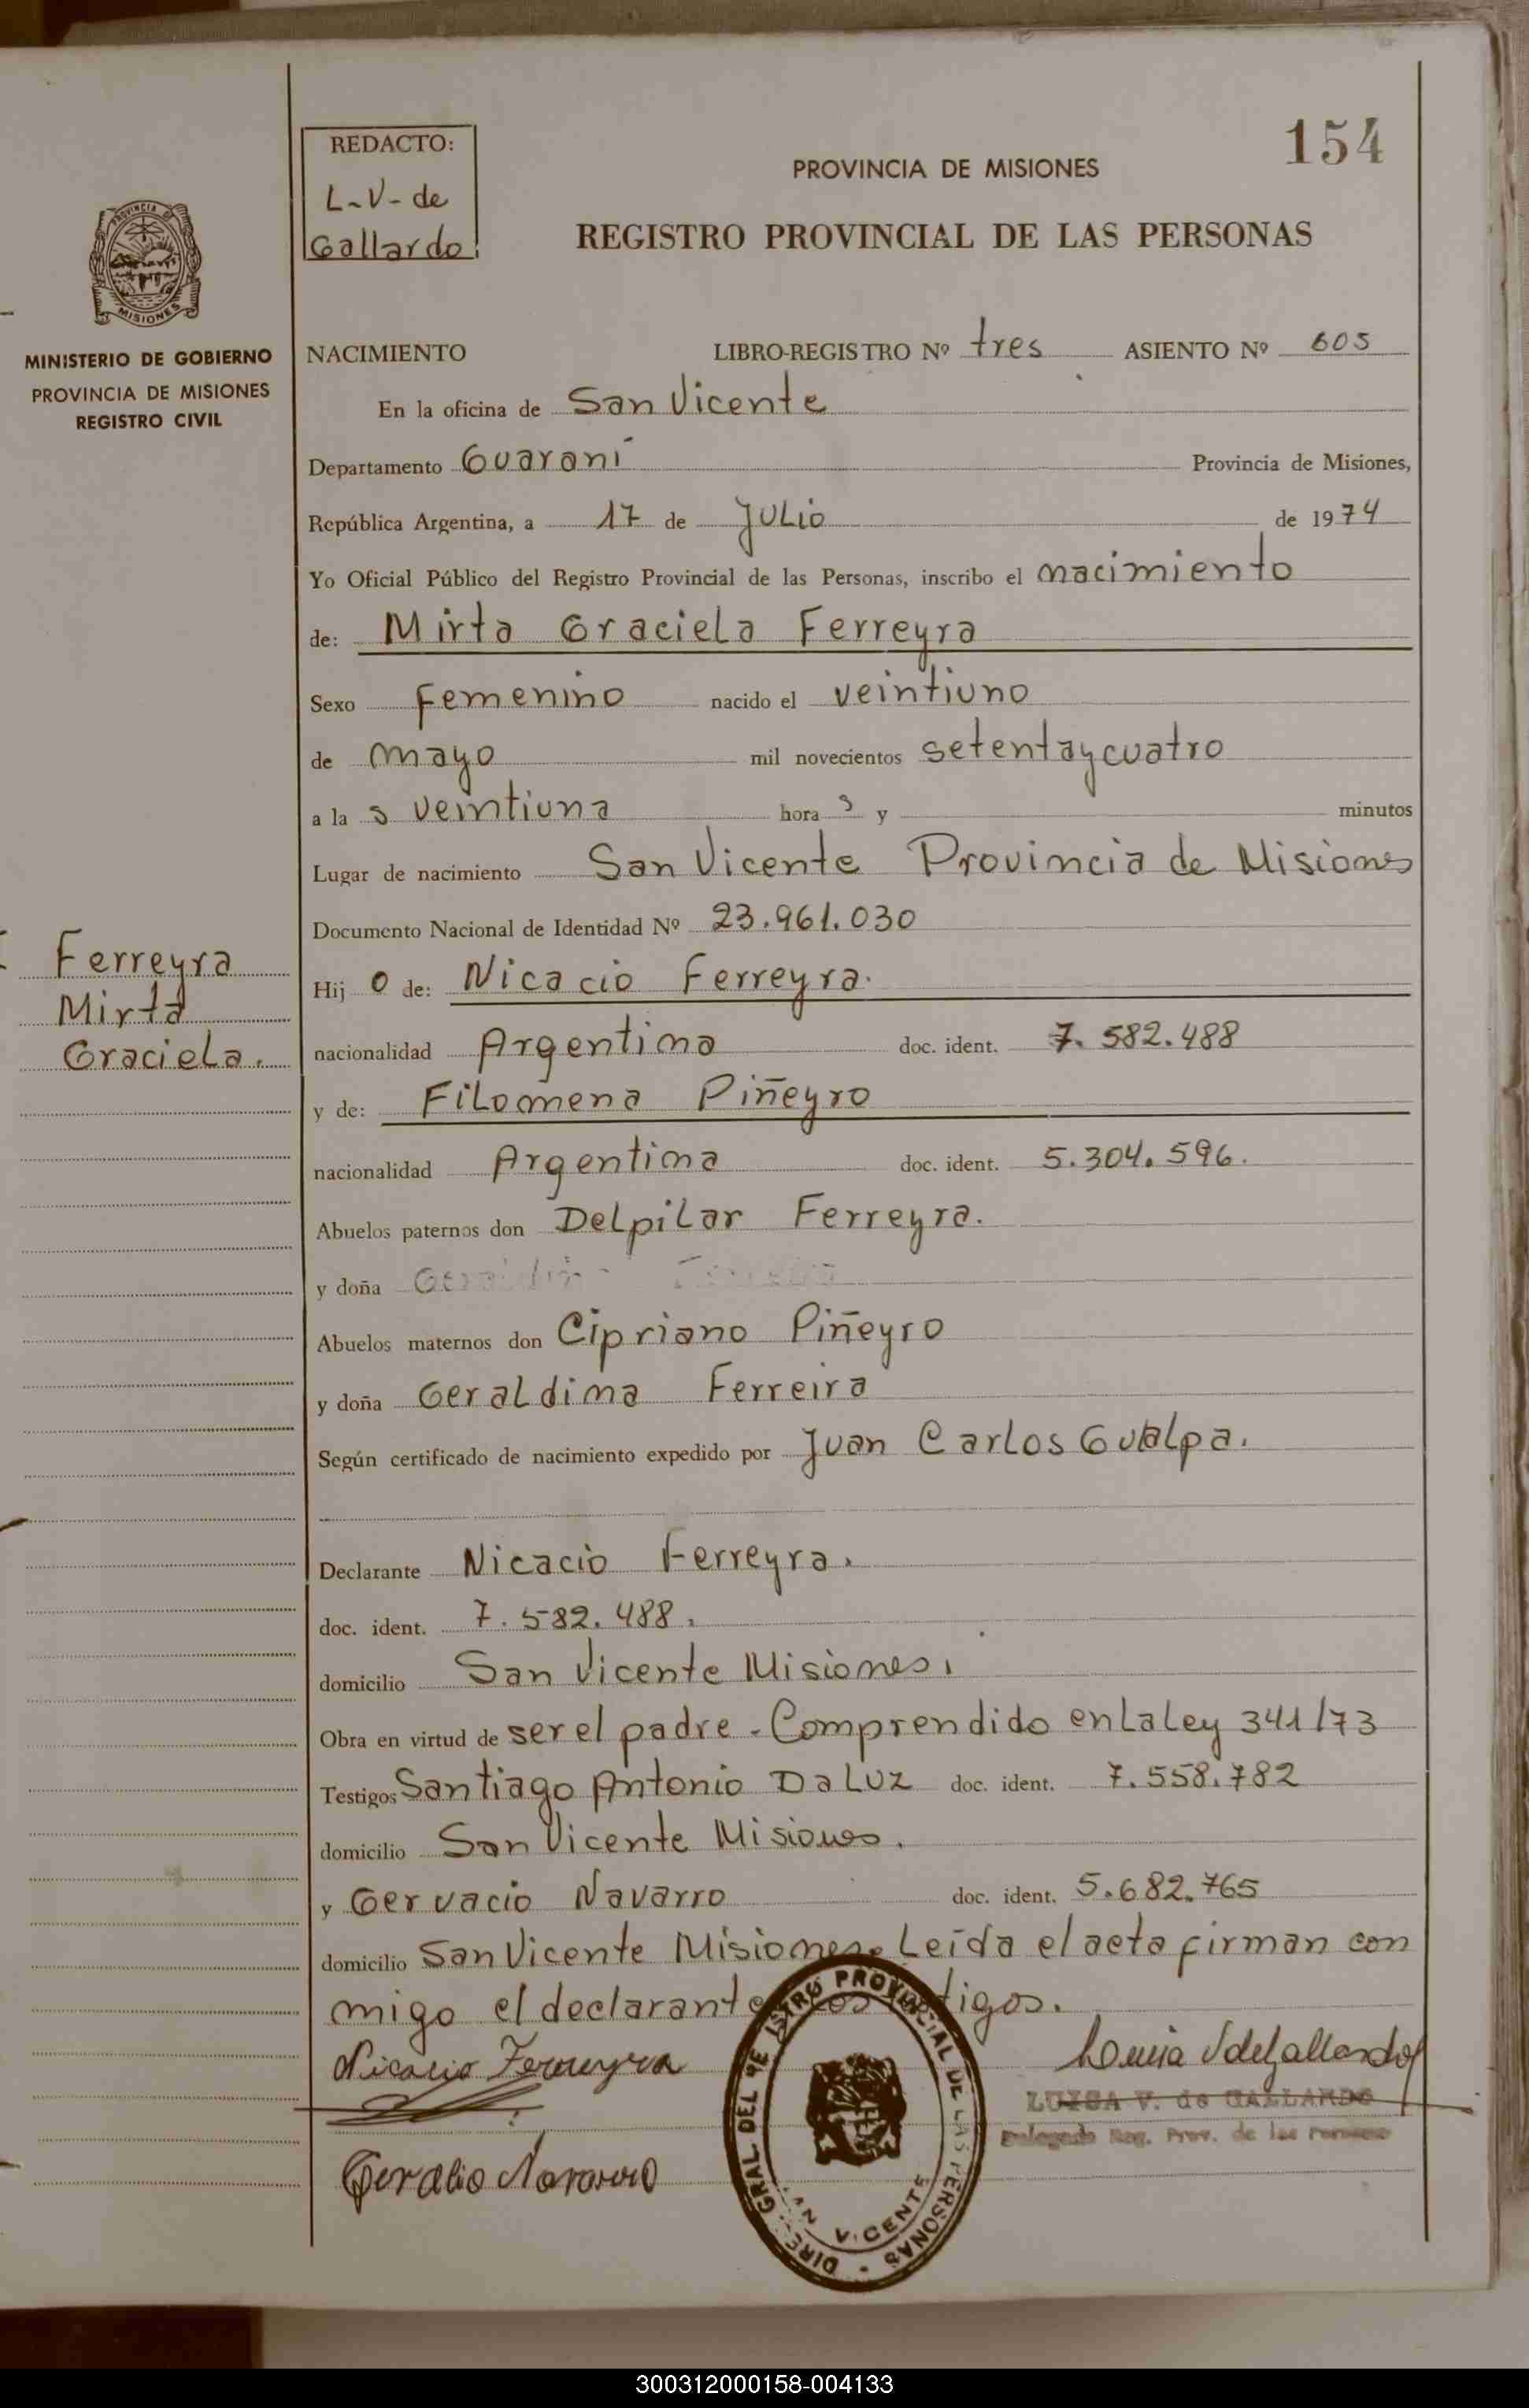 154
REDACTO:
L-V- de
Gallardo
PROVINCIA DE MISIONES
REGISTRO PROVINCIAL DE LAS PERSONAS
PROVINCIA
MISIONES
MINISTERIO DE GOBIERNO
PROVINCIA DE MISIONES
REGISTRO CIVIL
NACIMIENTO LIBRO-REGISTRO Nº tres ASIENTO Nº 605
En la oficina de San Vicente
Departamento Guaraní Provincia de Misiones,
República Argentina, a 17 de Julio de 1974
Yo Oficial Público del Registro Provincial de las Personas, inscribo el nacimiento
de: Mirta Graciela Ferreyra
Sexo Femenino nacido el veintiuno
de mayo mil novecientos setentaycuatro
a la s veintiuna hora s y minutos
Lugar de nacimiento San Vicente Provincia de Misiones
Documento Nacional de Identidad Nº 23.961.030
Ferreyra
Mirta
Graciela.
Hij o de: Nicacio Ferreyra.
nacionalidad Argentina doc. ident. 7.582.488
y de: Filomena Piñeyro
nacionalidad Argentina doc. ident. 5.304.596.
Abuelos paternos don Delpilar Ferreyra.
y doña
Abuelos maternos don Cipriano Piñeyro
y doña Geraldina Ferreira
Según certificado de nacimiento expedido por Juan Carlos Gualpa.
Declarante Nicacio Ferreyra.
doc. ident. 7.582.488.
domicilio San Vicente Misiones.
Obra en virtud de ser el padre - Comprendido en La Ley 341/73
Testigos Santiago Antonio Da Luz doc. ident. 7.558.782
domicilio San Vicente Misiones.
y Gervacio Navarro doc. ident. 5.682.765
domicilio San Vicente Misiones. Leída el acta firman con
migo el declarante
Nicacio Ferreyra
LUISA V. de GALLARDO
Delegado Reg. Prov. de las Personas
Navarro
PROVINCIAL DE LAS PERSONAS
GRAL DEL
VICENTE
300312000158-004133